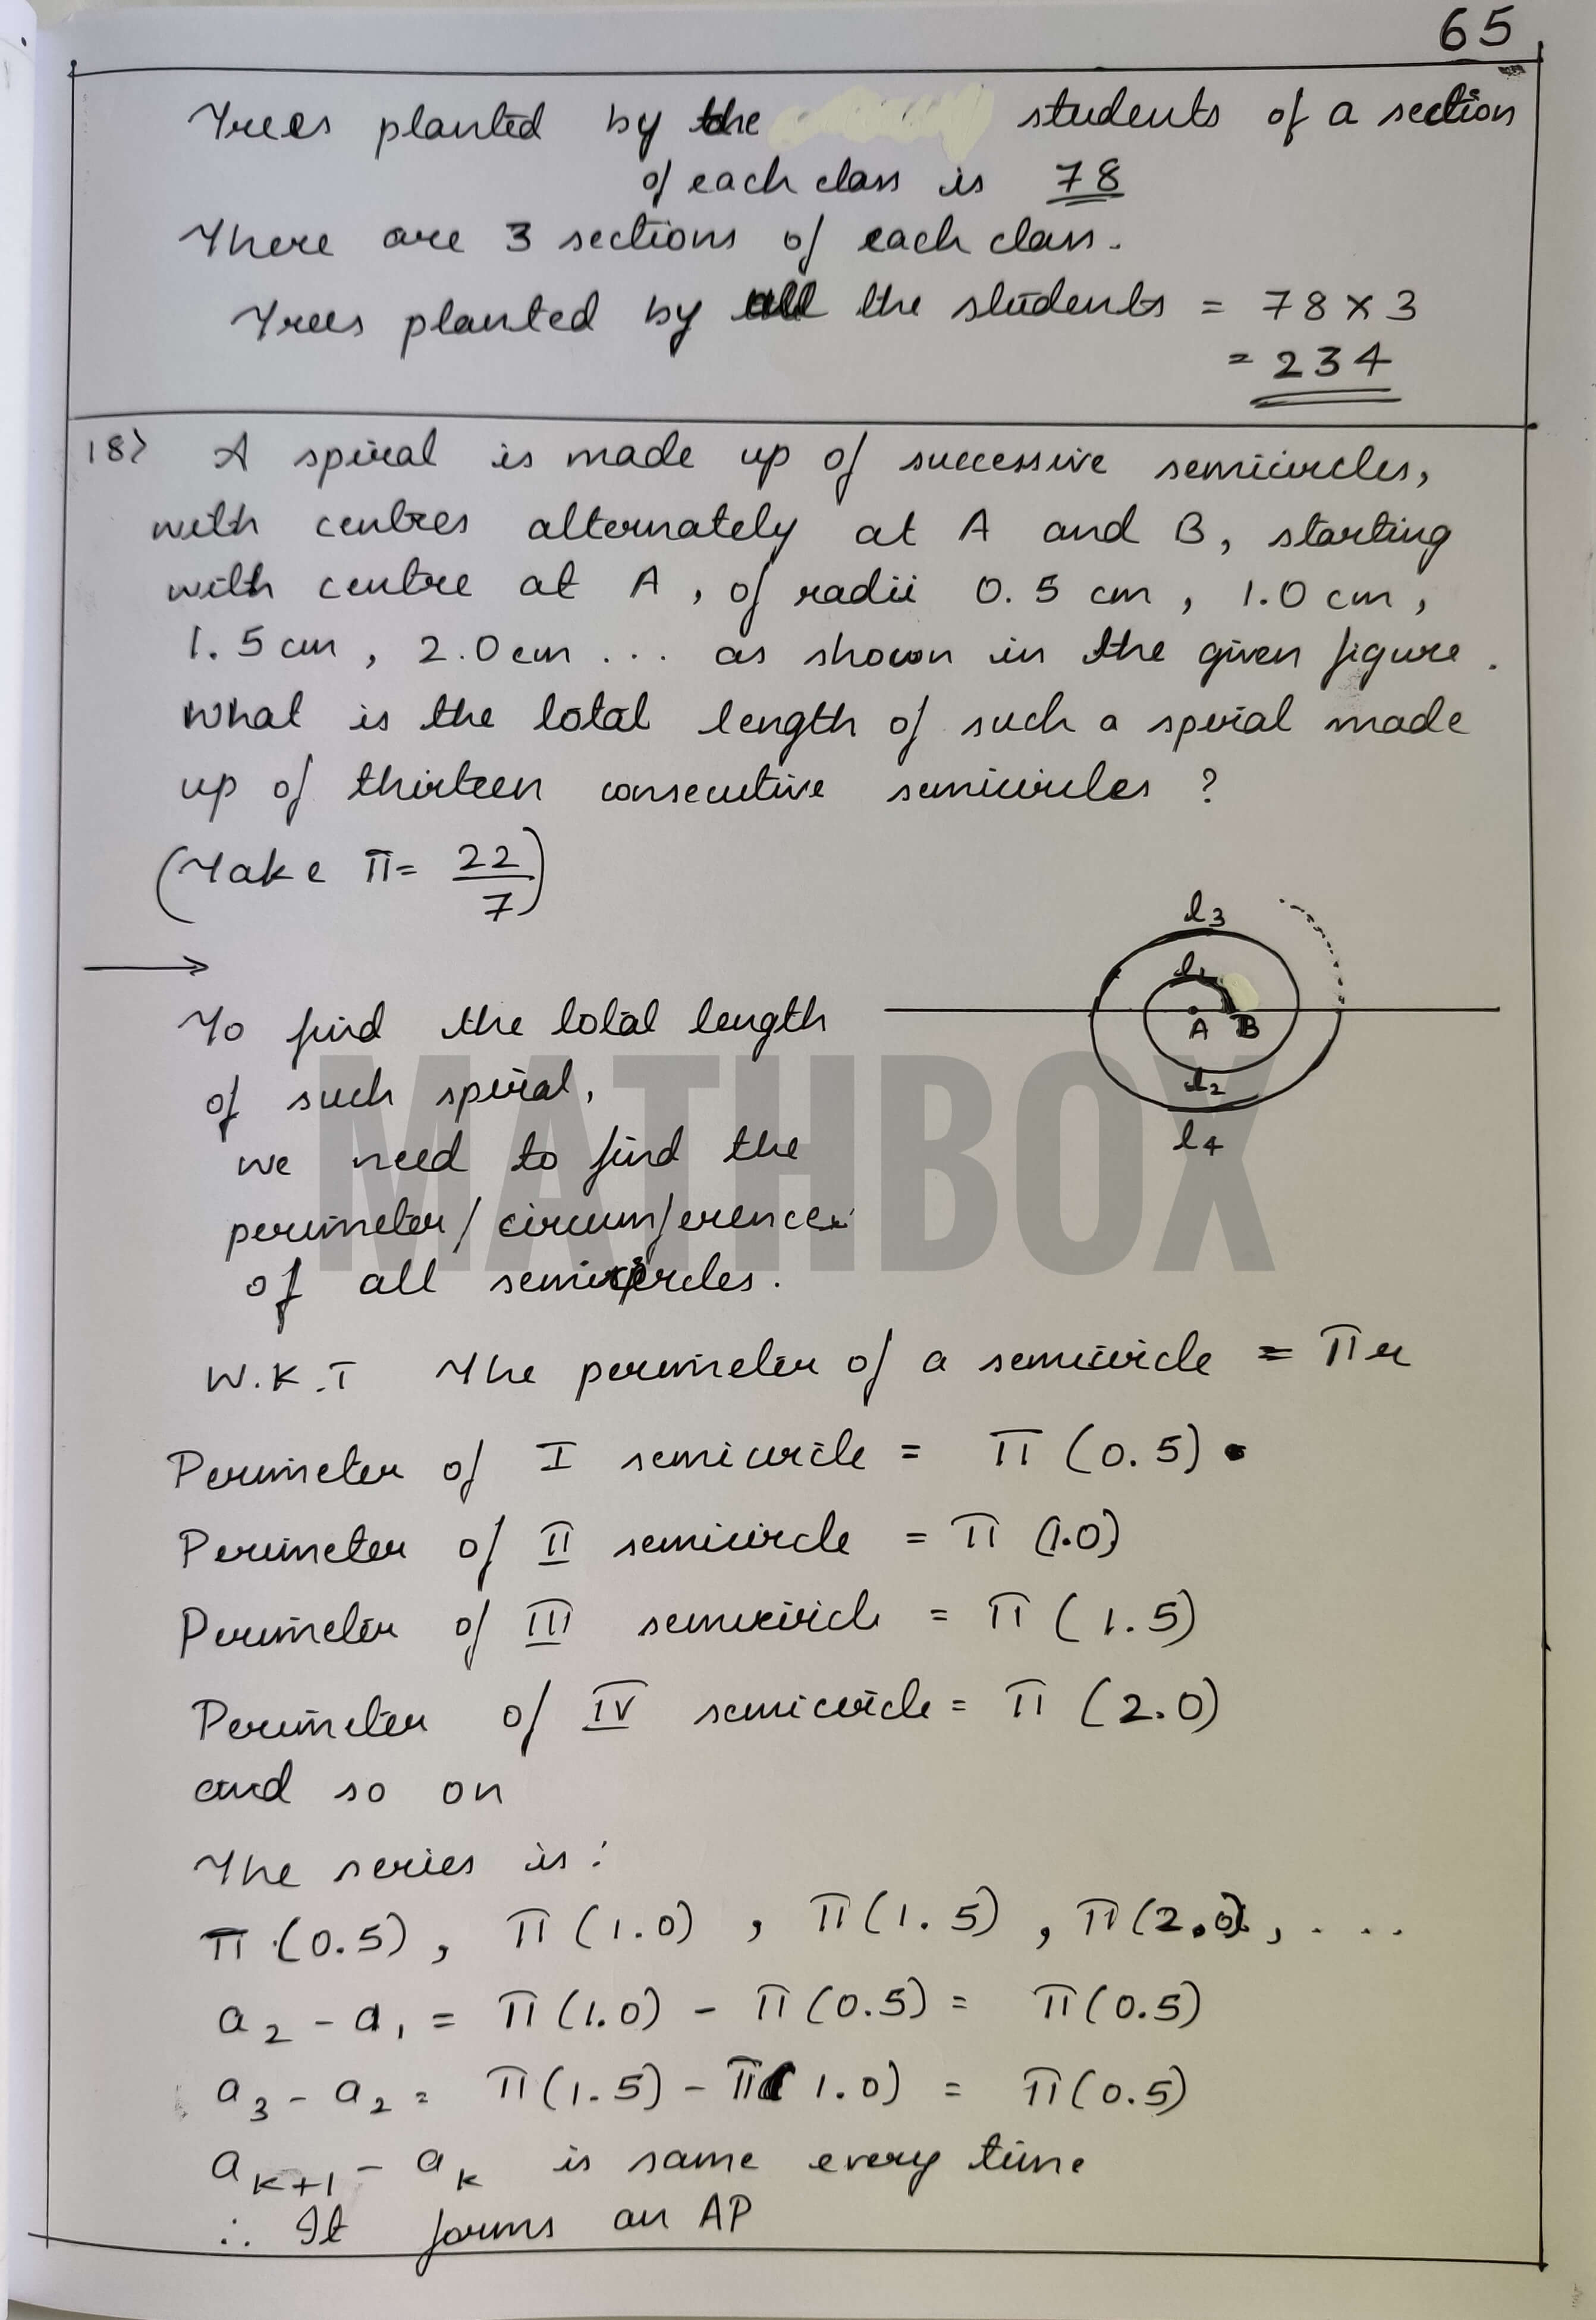 65
Trees planted by the students of a section
of each class is 78
There are 3 sections of each class.
Trees planted by all the students = 78 x 3
= 234
18> A spiral is made up of successive semicircles,
with centres alternately at A and B, starting
with centre at A, of radii 0.5 cm, 1.0 cm,
1.5 cm, 2.0 cm ... as shown in the given figure.
What is the total length of such a spiral made
up of thirteen consecutive semicircles ?
(Take π = 22/7)
l3
l1
A B
l2
l4
→
To find the total length
of such spiral,
we need to find the
perimeter/circumference
of all semicircles.
MATHBOX
W.K.T The perimeter of a semicircle = πr
Perimeter of I semicircle = π (0.5)
Perimeter of II semicircle = π (1.0)
Perimeter of III semicircle = π (1.5)
Perimeter of IV semicircle = π (2.0)
and so on
The series is :
π (0.5), π (1.0), π (1.5), π (2.0), ....
a2 - a1 = π (1.0) - π (0.5) = π (0.5)
a3 - a2 = π (1.5) - π (1.0) = π (0.5)
aK+1 - aK is same every time
∴ It forms an AP